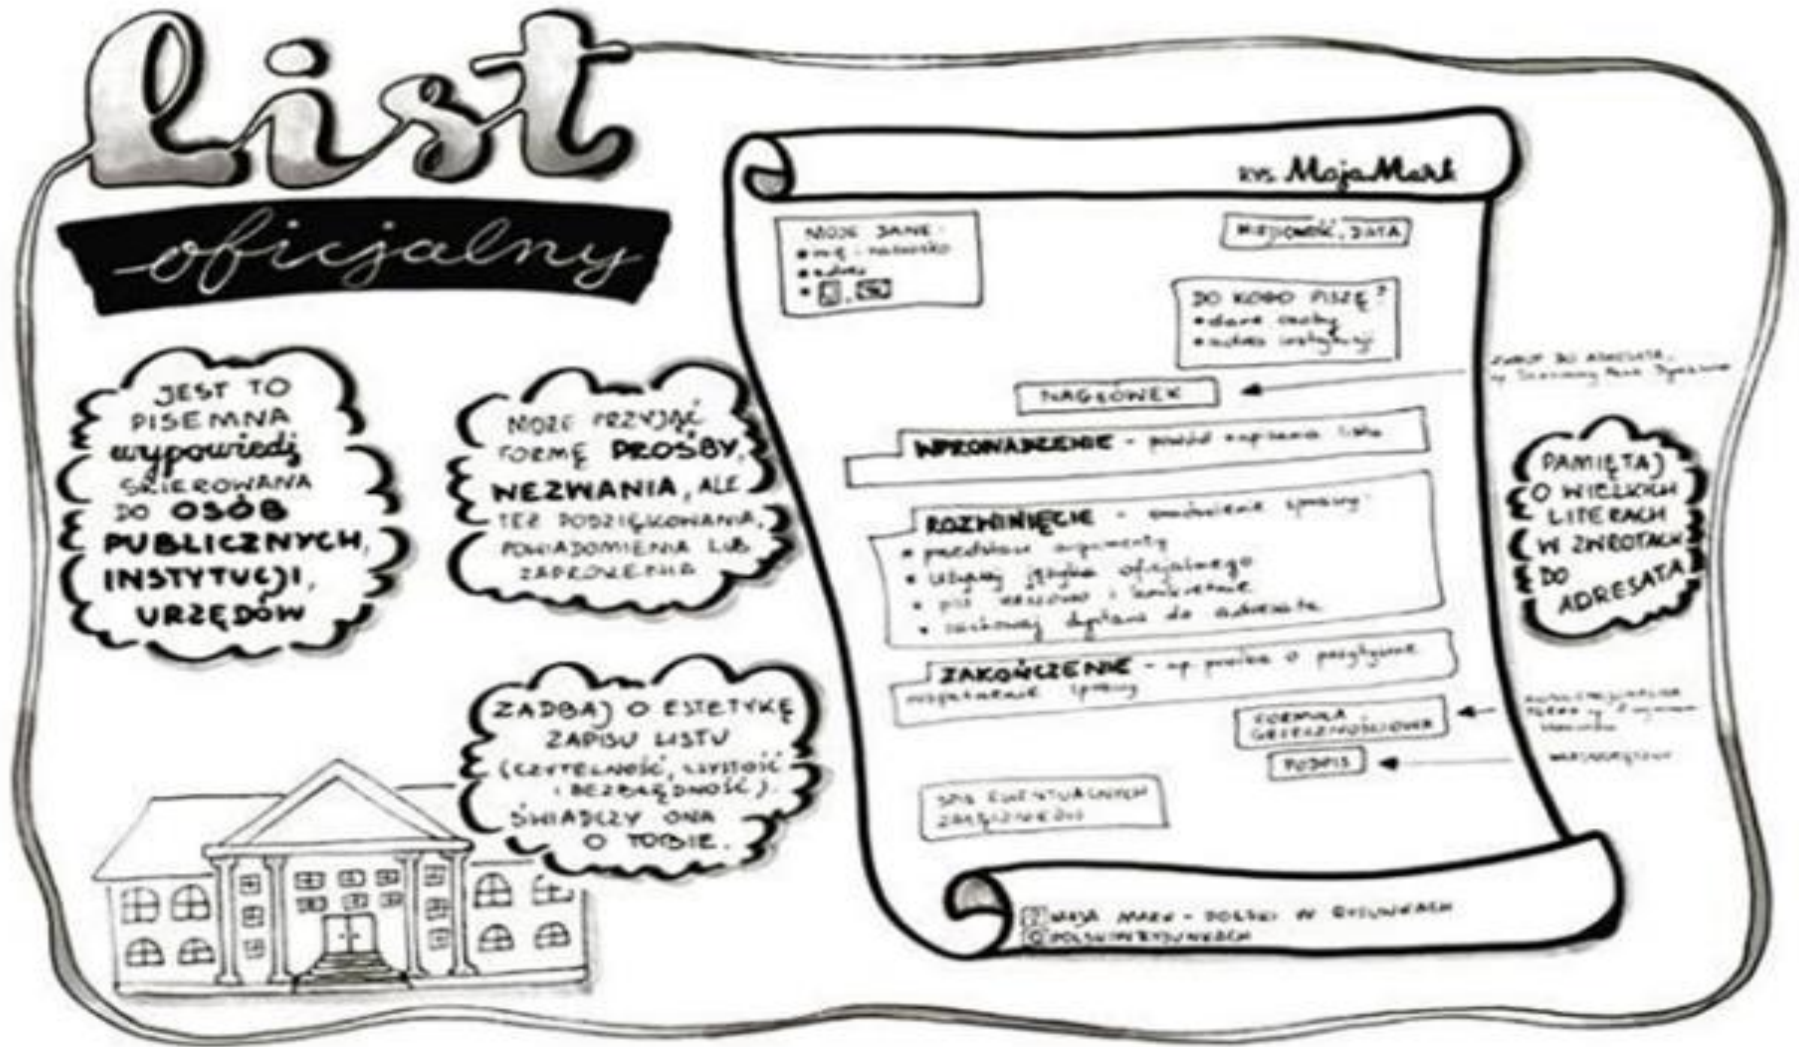 List
oficjalny
JEST TO
PISEMNA
wypowiedź
SKIEROWANA
DO OSÓB
PUBLICZNYCH,
INSTYTUCJI,
URZĘDÓW
MOŻE PRZYJĄĆ
FORMĘ PROŚBY,
WEZWANIA, ALE
TEŻ PODZIĘKOWANIA,
POWIADOMIENIA LUB
ZAPROSZENIA
ZADBAJ O ESTETYKĘ
ZAPISU LISTU
(CZYTELNOŚĆ, CZYSTOŚĆ
I BEZBŁĘDNOŚĆ).
ŚWIADCZY ONA
O TOBIE.
RYS. Maja Mark
MOJE DANE:
• imię i nazwisko
• adres
MIEJSCOWOŚĆ, DATA
DO KOGO PISZĘ?
• dane osoby
• adres instytucji
ZWROT DO ADRESATA,
np. Szanowny Panie Dyrektorze
NAGŁÓWEK
WPROWADZENIE - powód napisania listu
ROZWINIĘCIE - omówienie sprawy:
• przedstaw argumenty
• używaj języka oficjalnego
• pisz rzeczowo i konkretnie
• zachowaj dystans do adresata
ZAKOŃCZENIE - np. prośba o pozytywne
rozpatrzenie sprawy
FORMUŁA
GRZECZNOŚCIOWA
PODPIS
WŁASNORĘCZNY
SPIS EWENTUALNYCH
ZAŁĄCZNIKÓW
PAMIĘTAJ
O WIELKICH
LITERACH
W ZWROTACH
DO
ADRESATA
MAJA MARK - POLSKI W RYSUNKACH
POLSKIWRYSUNKACH